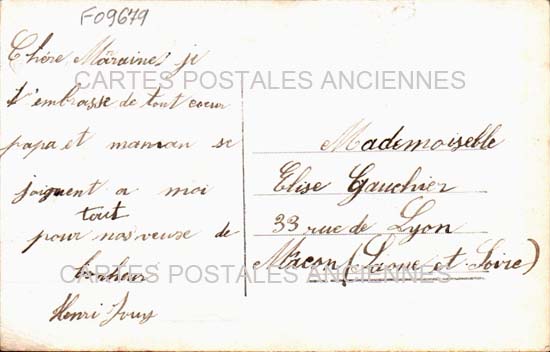 F09679
Chère Maraine je
t'embrasse de tout coeur
papa et maman se
joignent a moi
tout
pour nos veuse de
bonheur
Henri
Mademoiselle
Elise Gauchier
33 rue de Lyon
Mâcon (Saone et Loire)
CARTES POSTALES ANCIENNES
CARTES POSTALES ANCIENNES